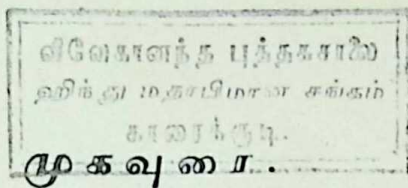 விவேகானந்த புத்தகசாலை
ஹிந்து மதாபிமான சங்கம்
காரைக்குடி.
முகவுரை.